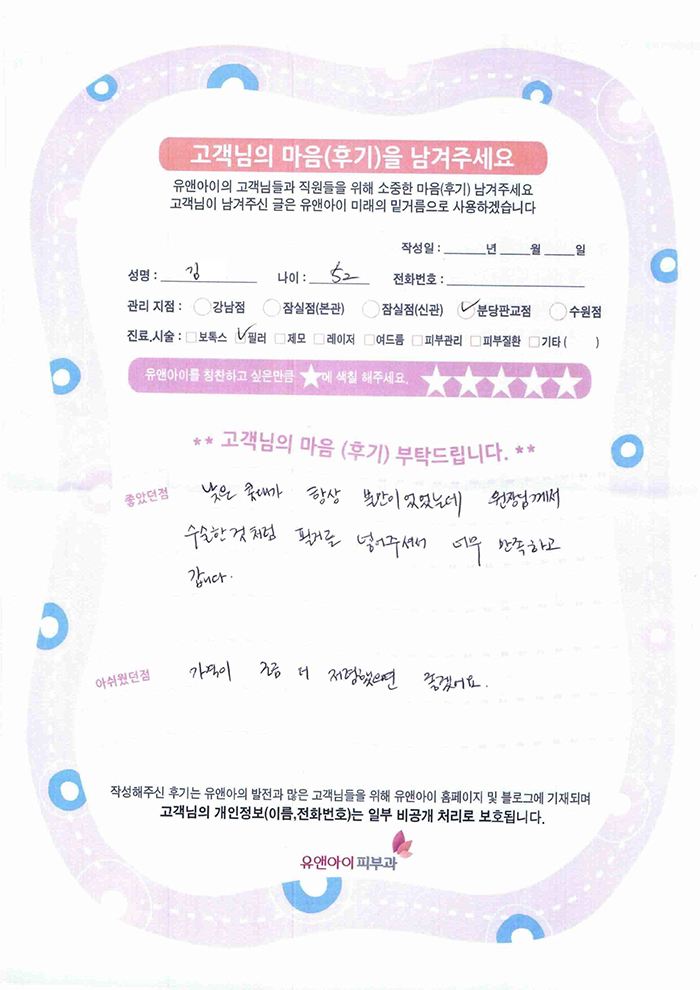 고객님의 마음(후기)을 남겨주세요
유앤아이의 고객님들과 직원들을 위해 소중한 마음(후기) 남겨주세요
고객님이 남겨주신 글은 유앤아이 미래의 밑거름으로 사용하겠습니다
작성일 : ______년 ____월 ____일
성명 : 김 나이 : 52 전화번호 :
관리 지점 : 강남점 잠실점(본관) 잠실점(신관) 분당판교점 수원점
진료.시술 : 보톡스 필러 제모 레이저 여드름 피부관리 피부질환 기타 ( )
유앤아이를 칭찬하고 싶은만큼 ★에 색칠 해주세요. ★★★★★
** 고객님의 마음 (후기) 부탁드립니다. **
좋았던점 낮은 콧대가 항상 불만이었었는데 원장님께서
수술한것처럼 필러를 넣어주셔서 너무 만족하고
갑니다.
아쉬웠던점 가격이 조금 더 저렴했으면 좋겠어요.
작성해주신 후기는 유앤아의 발전과 많은 고객님들을 위해 유앤아이 홈페이지 및 블로그에 기재되며
고객님의 개인정보(이름,전화번호)는 일부 비공개 처리로 보호됩니다.
유앤아이피부과